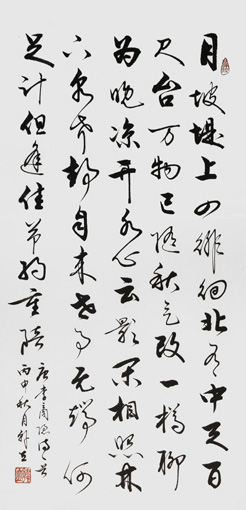 月坡堤上四徘徊北有中天百
尺台万物已随秋气改一樽聊
为晚凉开水心云影闲相照林
下泉声静自来世事无端何
足计但逢佳节约重陪
唐李商隐诗
丙申秋月